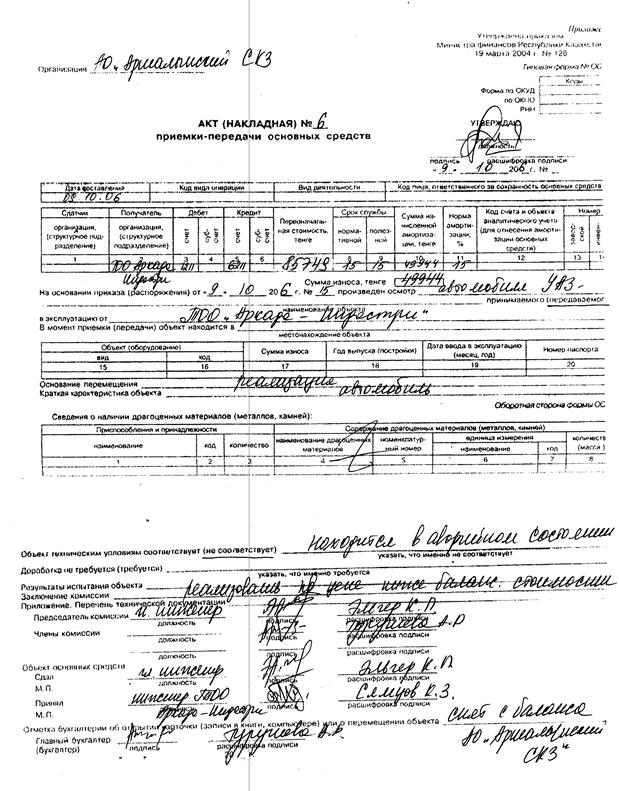 Приложе
Утверждена приказом
Министра финансов Республики Казахстан
19 марта 2004 г. № 128
Организация АО „Аркалыкский СКЗ
Типовая форма № ОС
Коды
Форма по ОКУД
по ОКПО
РНН
АКТ (НАКЛАДНАЯ) № 6
приемки-передачи основных средств
УТВЕРЖДАЮ
должность
подпись расшифровка подписи
"9" 10 2006 г. №
Дата составления Код вида операции Вид деятельности Код лица, ответственного за сохранность основных средств
09.10.06
Сдатчик Получатель Дебет Кредит Первоначальная стоимость, тенге Срок службы Сумма начисленной амортизации, тенге Норма амортизации, % Код счета и объекта аналитического учета (для отнесения амортизации основных средств) Номер
организация, (структурное подразделение) организация, (структурное подразделение) счет суб-счет счет суб-счет нормативной полезной заводской инвен-
1 3 4 5 6 12 13 1
ТОО Аркада 85749 15 15 49944 15
Индастри
Сумма износа, тенге 49944
На основании приказа (распоряжения) от "9" 10 2006 г. № 15 произведен осмотр автомобиля УАЗ-
наименование объекта
принимаемого (передаваемог
в эксплуатацию от ТОО „Аркада - Индастри"
В момент приемки (передачи) объект находится в
местонахождение объекта
Объект (оборудование) Сумма износа Год выпуска (постройки) Дата ввода в эксплуатацию (месяц, год) Номер паспорта
вид код
15 16 17 18 19 20
Основание перемещения реализация
Краткая характеристика объекта автомобиль
Оборотная сторона формы ОС
Сведения о наличии драгоценных материалов (металлов, камней):
Приспособления и принадлежности Содержание драгоценных материалов (металлов, камней)
наименование код количество наименование драгоценных материалов номенклатурный номер единица измерения количеств (масса)
наименование код
1 2 3 4 5 6 7 8
Объект техническим условиям соответствует (не соответствует) находится в аварийном состоянии
указать, что именно не соответствует
Доработка не требуется (требуется)
указать, что именно требуется
Результаты испытания объекта
Заключение комиссии реализовать по цене ниже баланс. стоимости
Приложение. Перечень технической документации
Председатель комиссии гл. инженер Эльгер К.П.
должность подпись расшифровка подписи
Члены комиссии А.Р
должность подпись расшифровка подписи
должность подпись расшифровка подписи
Объект основных средств
Сдал гл. инженер Эльгер К.П.
М.П. должность подпись расшифровка подписи
Принял инженер ТОО К.З.
М.П. Аркада-Индастри подпись расшифровка подписи
Отметка бухгалтерии об открытии карточки (записи в книге, компьютере) или о перемещении объекта снят с баланса
Главный бухгалтер АО „Аркалыкский
(бухгалтер) подпись расшифровка подписи СКЗ"